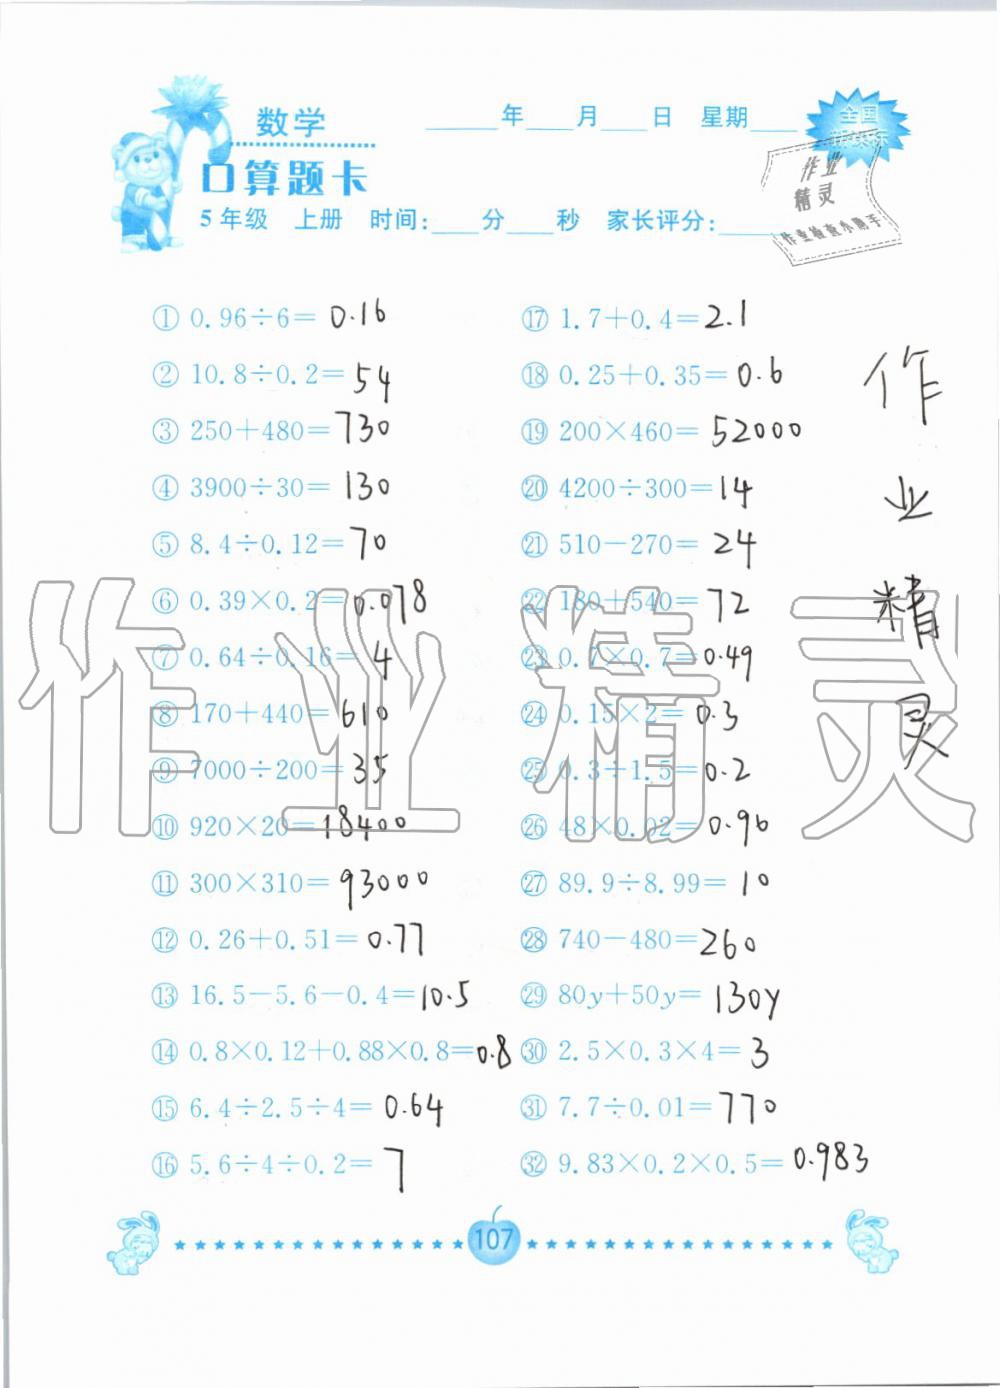 数学
____年____月____日 星期____
全国
口算题卡
作业
精灵
作业检查小助手
5年级 上册 时间:____分____秒 家长评分:____
① 0.96÷6= 0.16
② 10.8÷0.2= 54
③ 250+480= 730
④ 3900÷30= 130
⑤ 8.4÷0.12= 70
⑥ 0.39×0.2= 0.078
⑦ 0.64÷0.16= 4
⑧ 170+440= 610
⑨ 7000÷200= 35
⑩ 920×20= 18400
⑪ 300×310= 93000
⑫ 0.26+0.51= 0.77
⑬ 16.5-5.6-0.4= 10.5
⑭ 0.8×0.12+0.88×0.8= 0.8
⑮ 6.4÷2.5÷4= 0.64
⑯ 5.6÷4÷0.2= 7
⑰ 1.7+0.4= 2.1
⑱ 0.25+0.35= 0.6
⑲ 200×460= 52000
⑳ 4200÷300= 14
㉑ 510-270= 24
㉒ 180+540= 72
㉓ 0.7×0.7= 0.49
㉔ 0.15×2= 0.3
㉕ 0.3÷1.5= 0.2
㉖ 48×0.02= 0.96
㉗ 89.9÷8.99= 10
㉘ 740-480= 260
㉙ 80y+50y= 130y
㉚ 2.5×0.3×4= 3
㉛ 7.7÷0.01= 770
㉜ 9.83×0.2×0.5= 0.983
作
业
精
灵
作业精灵
107